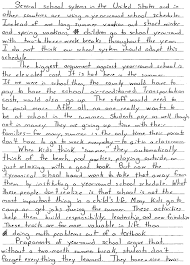 Several school systems in the United States and in
other countries are using a year-round school schedule.
Instead of one long summer vacation and short winter
and spring vacations, children go to school year-round
with two to three week breaks throughout the year.
I do not think our school system should adopt this
schedule.
The biggest argument against year-round school is
the elevated cost. It is hot here in the summer.
If we were in school then, the county would have to
pay to have the school air-conditioned. Transportation
costs would also go up. The staff would need to
be paid more. After all, no one really wants to
be at school in the summer. Students pay, as well though
not in money. They are giving up time with their
families. For many, summer is the only time their parents
don't have to go to work
When kids think "summer," they automatically
think of the beach, pool parties, playing outside, or
just relaxing with a good book. But now the
school board wants to take that away from
them by instituting a year-round school schedule. What
these people don't realize is that school is not the
most important thing in a child's life. Many kids go to
camp or get jobs during the summer. These activities
help them build responsibility, leadership, and new friendships.
These traits are far more valuable in life than
doing math problems out of a textbook.
Proponents of year-round school argue that
without a two-month summer break, students don't
forget everything they learned. They have